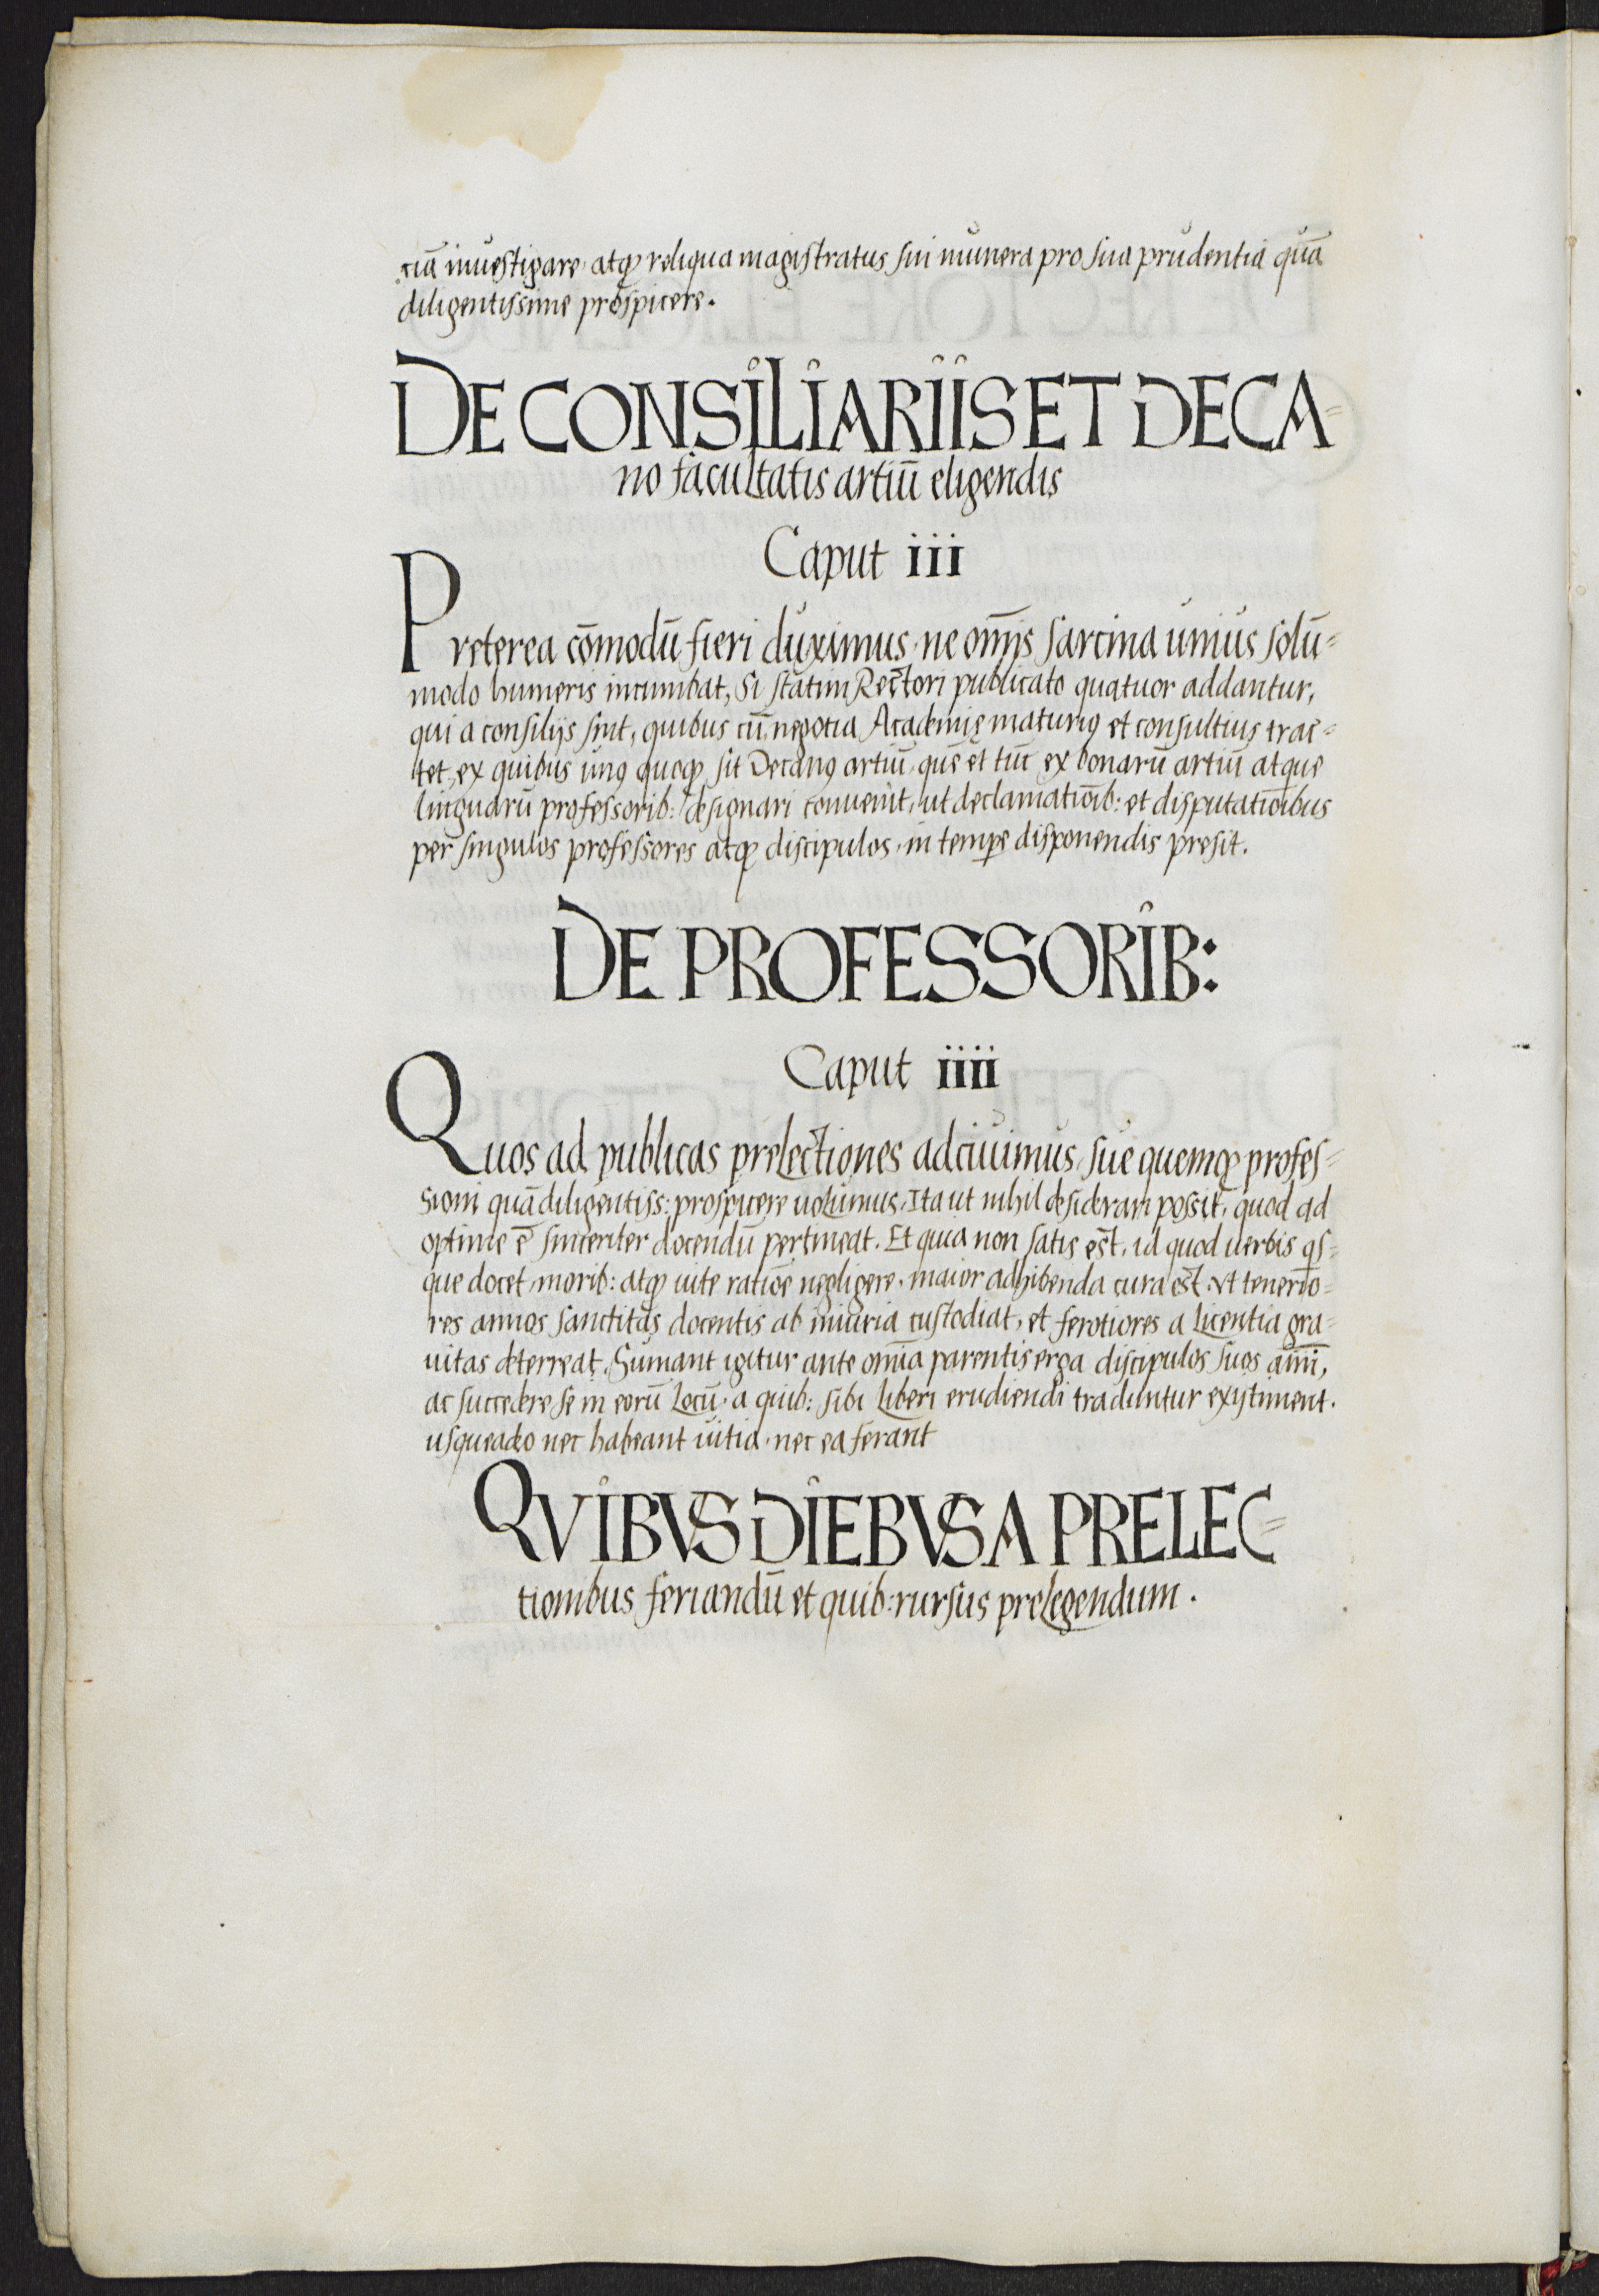 ciā inuestigare, atqꝫ reliqua magistratus sui munera pro sua prudentia quā
diligentissime prospicere.
DE CONSILIARIIS ET DECA=
no facultatis artiū eligendis
Caput iii
Preterea cōmodū fieri duximus, ne om̄is sarcina unius solū=
modo humeris incumbat, Si statim Rectori publicato quatuor addantur,
qui a consilijs sint, quibus cū negotia Academię maturiꝰ et consultius trac=
tet, ex quibus unꝰ quoqꝫ sit Decanꝰ artiū, quē et tūc ex bonarū artiū atque
linguarū professorib: designari conuenit, ut declamatiōib: et disputatiōibus
per singulos professores atqꝫ discipulos, in tempe disponendis presit.
DE PROFESSORIB:
Caput iiii
Quos ad publicas prelectiones adciuimus, sue quemqꝫ profes=
sioni quā diligentiss: prospicere uolumus, Ita ut nihil desiderari possit, quod ad
optime ē sinceriter docendū pertineat. Et quia non satis est, id quod uerbis qs=
que docet, morib: atqꝫ uite ratiōe negligere, maior adhibenda cura est. Vt tenerio=
res annos sanctitas docentis ab iniuria custodiat, et ferotiores a licentia gra=
uitas deterreat, Sumant igitur ante om̄ia parentis erga discipulos suos aīm̄,
ac succedere se in eorū locū, a quib: sibi liberi erudiendi traduntur existiment.
usqueadeo nec habeant uitia, nec ea ferant
QVIBVS DIEBVS A PRELEC=
tionibus feriandū et quib: rursus prelegendum.